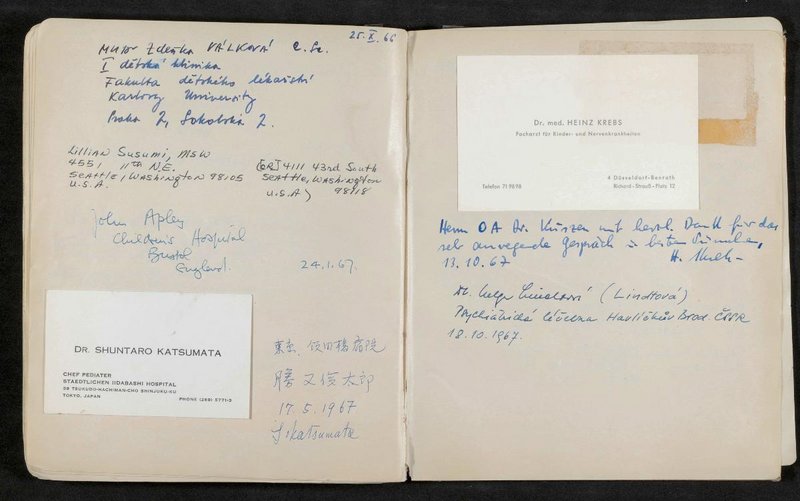 25.X.66
MUDr Zdenka VÁLKOVÁ C.Sc.
I dětská klinika
Fakulta dětského lékařství
Karlovy University
Praha 2, Sokolská 2.
Lillian Susumi, MSW
4551, 11th N.E.
Seattle, Washington 98105
U.S.A.
(OR) 4111 43rd South
Seattle, Washington
U.S.A) 98118
John Apley
Children's Hospital
Bristol
England.
24.1.67.
DR. SHUNTARO KATSUMATA
CHEF PEDIATER
STAEDTLICHEN IIDABASHI HOSPITAL
TSUKUDO-HACHIMAN-CHO SHINJUKU-KU
TOKYO, JAPAN
PHONE (269) 5771-3
東京 飯田橋病院
勝又俊太郎
17.5.1967
S. Katsumata
Dr. med. HEINZ KREBS
Facharzt für Kinder- und Nervenkrankheiten
Telefon 71 98 98
4 Düsseldorf-Benrath
Richard-Strauß-Platz 12
Herrn OA Dr. mit herzl. Dank für das
sehr anregende Gespräch
13.10.67
Dr. Helga (Lindtová)
Psychiatrická léčebna Havlíčkův Brod ČSSR
18.10.1967.